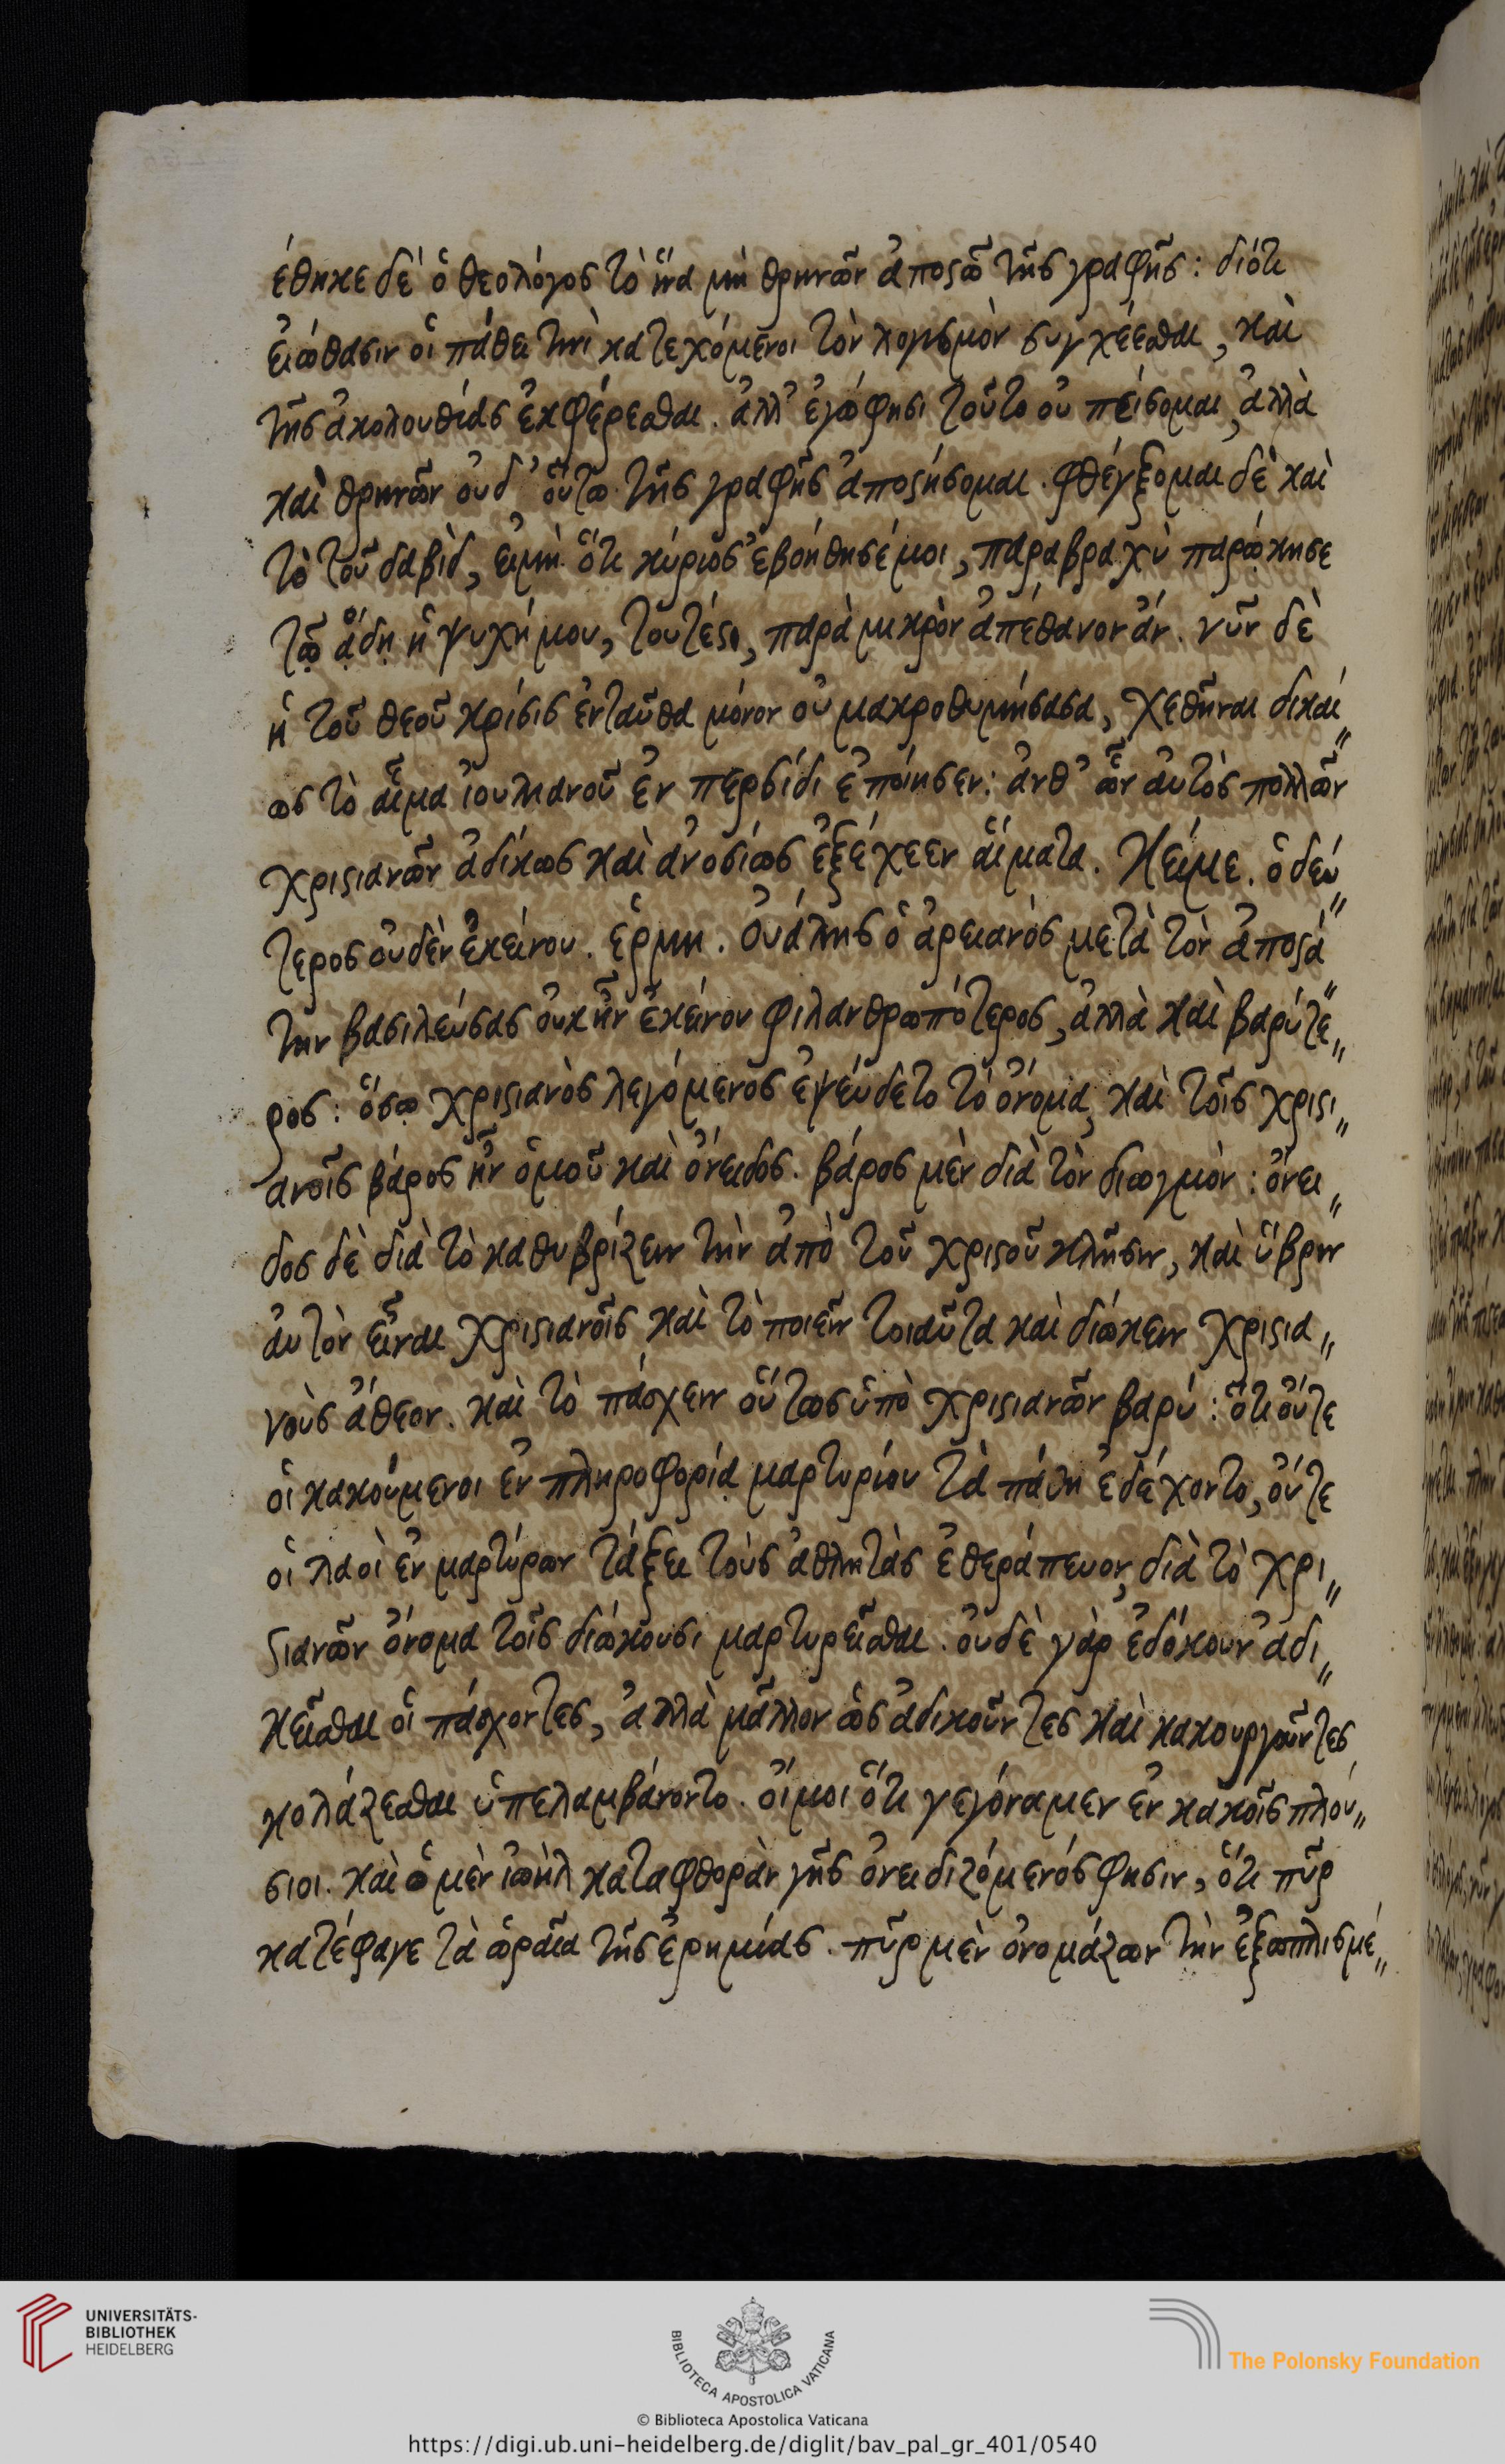 έθηκε δὲ ὁ θεολόγος τὸ ἵνα μὴ θρηνῶν ἀποστῶ τῆς γραφῆς: διότι
εἰώθασιν οἱ πάθει τινὶ κατεχόμενοι τὸν λογισμὸν συγχέεσθαι, καὶ
τῆς ἀκολουθίας ἐκφέρεσθαι. ἀλλ' ἐγώ φησι τοῦτο οὐ πείσομαι, ἀλλὰ
καὶ θρηνῶν οὐδ' οὕτω τῆς γραφῆς ἀποστήσομαι. φθέγξομαι δὲ καὶ
τὸ τοῦ δαβὶδ, εἰμὴ ὅτι κύριος ἐβοήθησέ μοι, παραβραχὺ παρῴκησε
τῷ ᾅδῃ ἡ ψυχή μου, τουτέστι, παρὰ μικρὸν ἀπέθανον ἄν. νῦν δὲ
ἡ τοῦ θεοῦ κρίσις ἐνταῦθα μόνον οὐ μακροθυμήσασα, χεθῆναι δικαί〃
ως τὸ αἷμα ἰουλιανοῦ ἐν περσίδι ἐποίησεν: ἀνθ' ὧν αὐτὸς πολλῶν
χριστιανῶν ἀδίκως καὶ ἀνοσίως ἐξέχεεν αἵματα. Κείμε. ὁ δεύ〃
τερος οὐδὲν ἐκείνου. ἑρμη. Οὐάλης ὁ ἀρειανὸς μετὰ τὸν ἀποστά〃
την βασιλεύσας οὐκ ἦν ἐκείνου φιλανθρωπότερος, ἀλλὰ καὶ βαρύτε〃
ρος: ὅσῳ χριστιανὸς λεγόμενος ἐψεύδετο τὸ ὄνομα, καὶ τοῖς χριστι〃
ανοῖς βάρος ἦν ὁμοῦ καὶ ὄνειδος. βάρος μὲν διὰ τὸν διωγμὸν: ὄνει〃
δος δὲ διὰ τὸ καθυβρίζειν τὴν ἀπὸ τοῦ χριστοῦ κλῆσιν, καὶ ὕβριν
αὐτὸν εἶναι χριστιανοῖς καὶ τὸ ποιεῖν τοιαῦτα καὶ διώκειν χριστια〃
νοὺς ἄθεον. καὶ τὸ πάσχειν οὕτως ὑπὸ χριστιανῶν βαρύ: ὅτι οὔτε
οἱ κακούμενοι ἐν πληροφορίᾳ μαρτυρίου τὰ πάθη ἐδέχοντο, οὔτε
οἱ λαοὶ ἐν μαρτύρων τάξει τοὺς ἀθλητὰς ἐθεράπευον, διὰ τὸ χρι〃
στιανῶν ὄνομα τοῖς διώκουσι μαρτυρεῖσθαι. οὐδὲ γὰρ ἐδόκουν ἀδι〃
κεῖσθαι οἱ πάσχοντες, ἀλλὰ μᾶλλον ὡς ἀδικοῦντες καὶ κακουργοῦντες
κολάζεσθαι ὑπελαμβάνοντο. οἴμοι ὅτι γεγόναμεν ἐν κακοῖς πλού〃
σιοι. καὶ ὁ μὲν ἰωὴλ καταφθορὰν γῆς ὀνειδιζόμενός φησιν, ὅτι πῦρ
κατέφαγε τὰ ὡραῖα τῆς ἐρημίας. πῦρ μὲν ὀνομάζων τὴν ἐξωπλισμέ〃
UNIVERSITÄTS-
BIBLIOTHEK
HEIDELBERG
BIBLIOTECA APOSTOLICA VATICANA
The Polonsky Foundation
© Biblioteca Apostolica Vaticana
https://digi.ub.uni-heidelberg.de/diglit/bav_pal_gr_401/0540